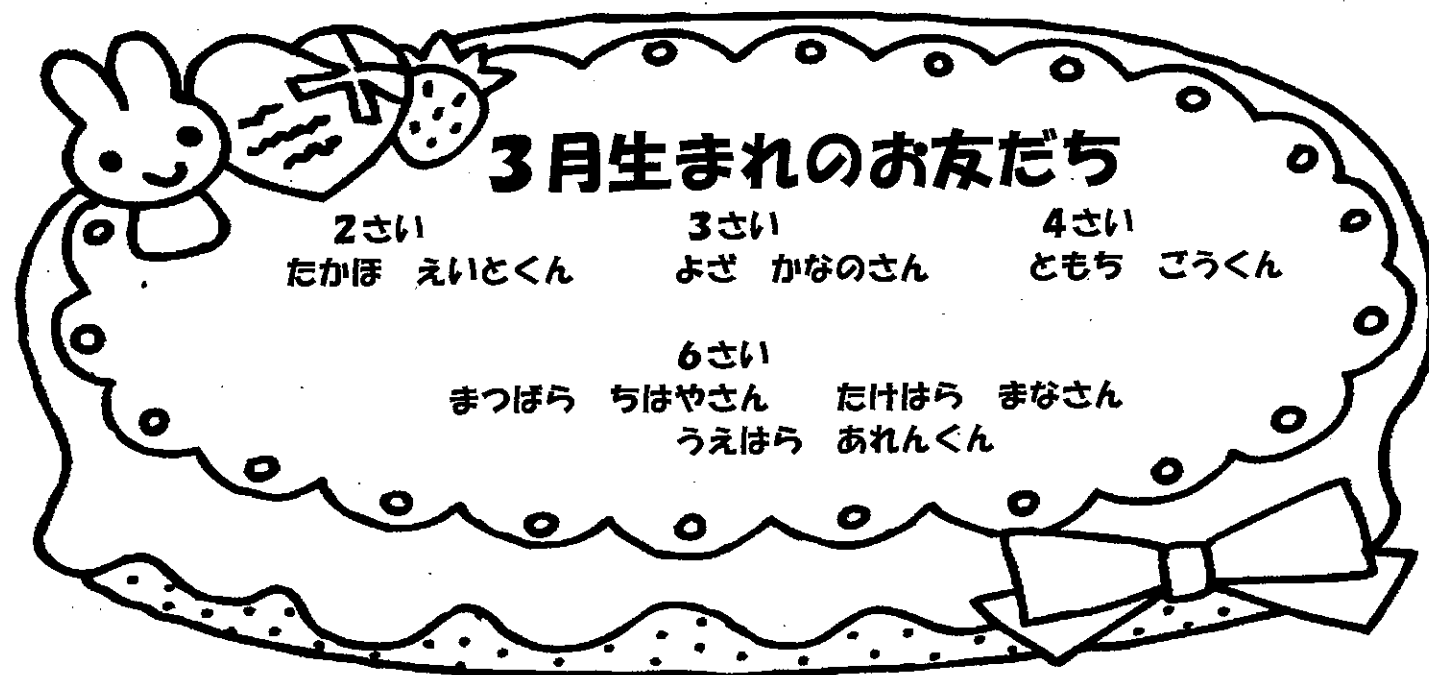 3月生まれのお友だち
2さい　3さい　4さい
たかほ　えいとくん　よざ　かなのさん　ともち　ごうくん
6さい
まつばら　ちはやさん　たけはら　まなさん
うえはら　あれんくん